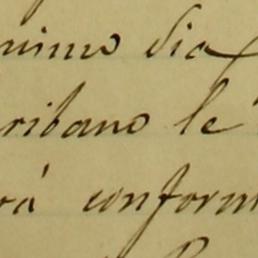 nimo dia
ribano le
rá conform